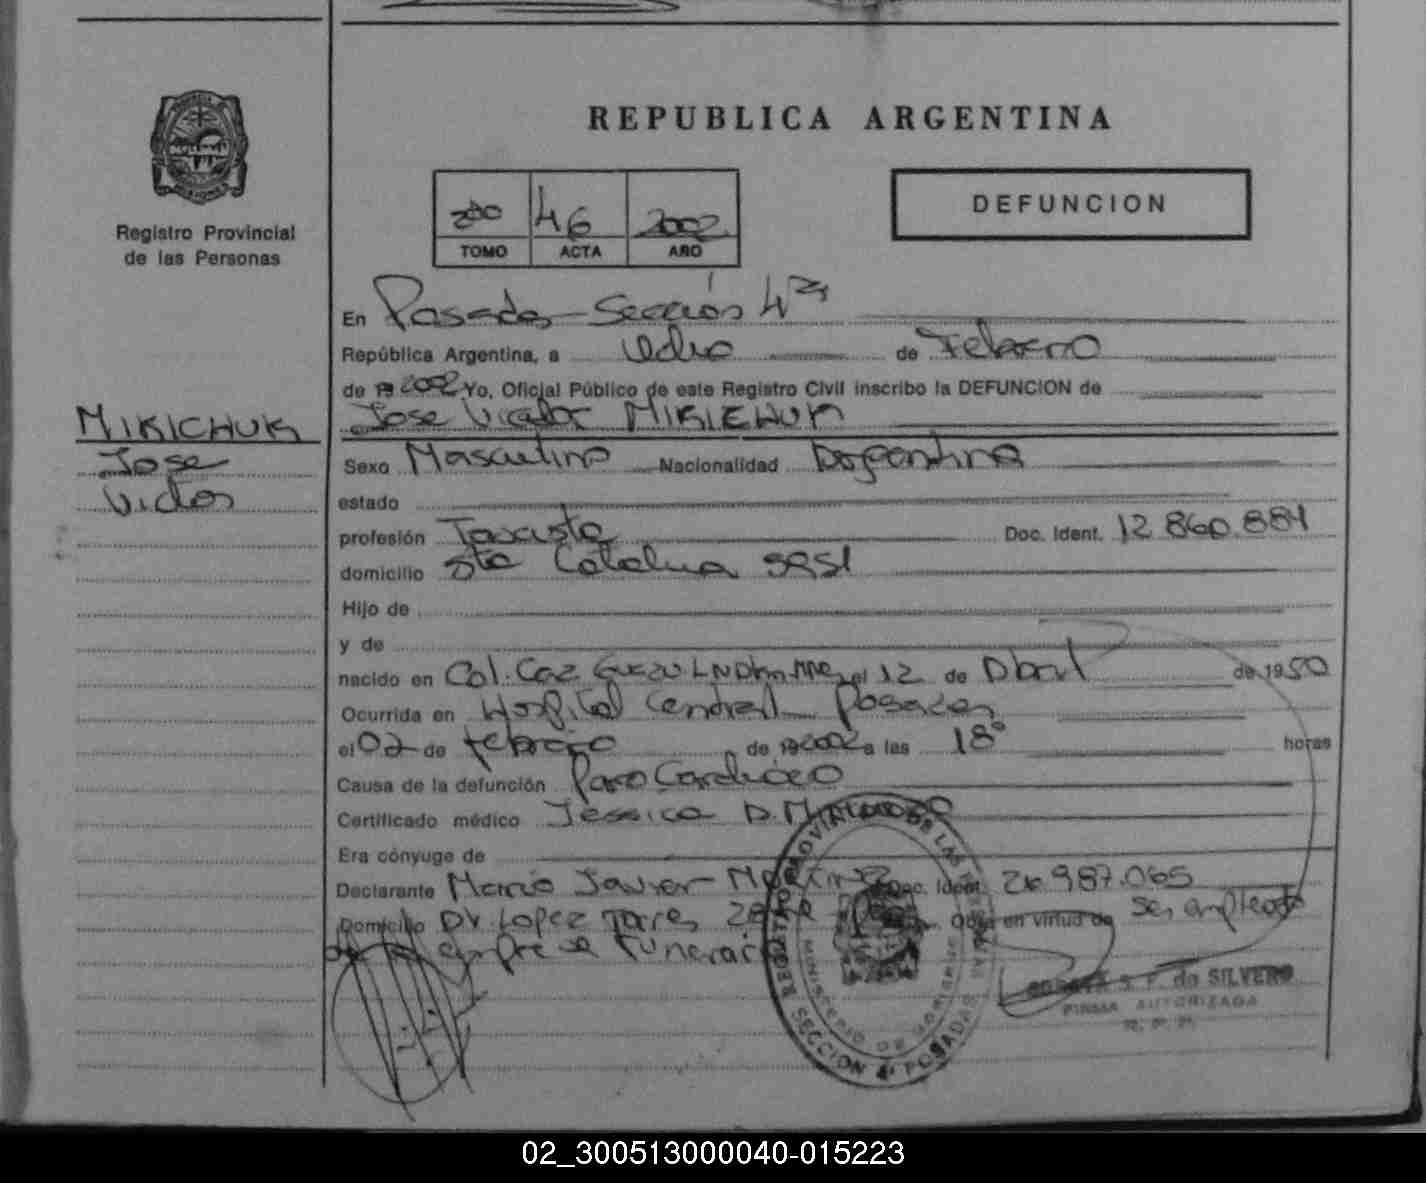 REPUBLICA ARGENTINA
Registro Provincial
de las Personas
46 2002
TOMO ACTA AÑO
DEFUNCION
En Posadas Sección 4ta
República Argentina, a Ocho de Febrero
de 19 2002 Yo, Oficial Público de este Registro Civil inscribo la DEFUNCION de
Jose Victor MIKICHUK
MIKICHUK
Jose
Victor
Sexo Masculino Nacionalidad Argentina
estado
profesión Taxista Doc. Ident. 12.860.884
domicilio Sta Catalina
Hijo de
y de
nacido en Col. el 12 de Abril de 1950
Ocurrida en Hospital Central Posadas
el 02 de febrero de 19 2002 a las 18° horas
Causa de la defunción Paro Cardiaco
Certificado médico Jessica D.
Era cónyuge de
Declarante Mario Javier Martinez Doc. Ident. 24.987.065
Domicilio Dr. Lopez Torres Obra en virtud de ser empleado
empresa funeraria
REGISTRO PROVINCIAL DE LAS PERSONAS
MINISTERIO DE GOBIERNO
SECCION 4ª POSADAS
de SILVERO
FIRMA AUTORIZADA
02_300513000040-015223